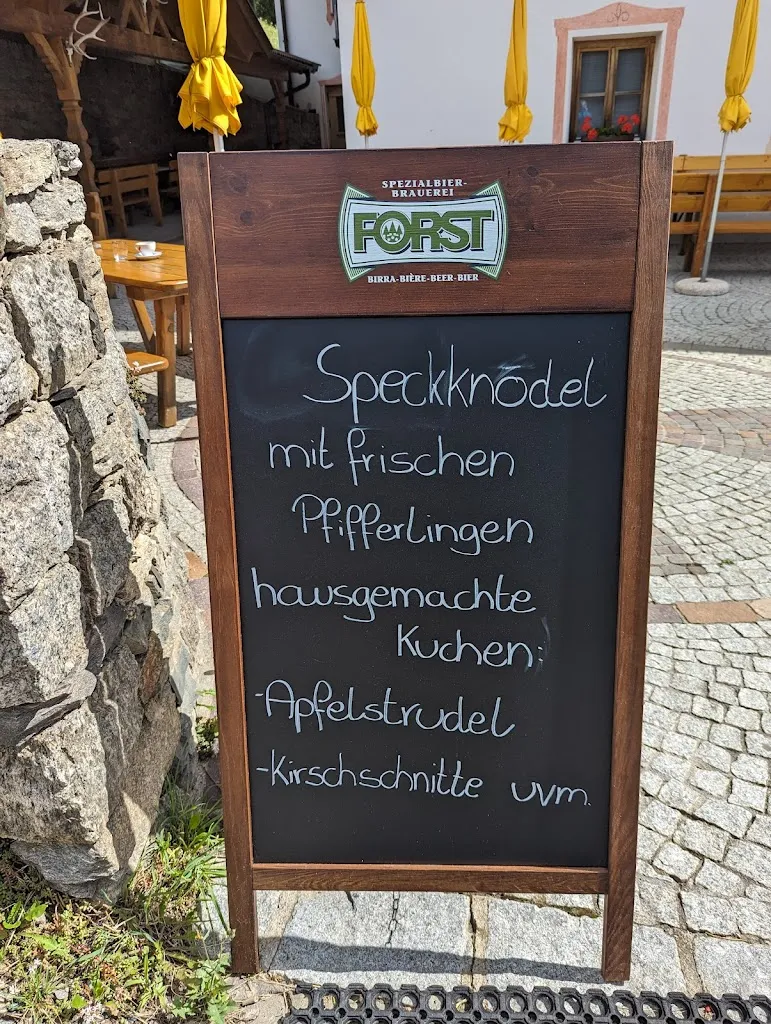 SPEZIALBIER-
BRAUEREI
FORST
BIRRA-BIÈRE-BEER-BIER
Speckknödel
mit frischen
Pfifferlingen
hausgemachte
Kuchen:
-Apfelstrudel
-Kirschschnitte uvm.